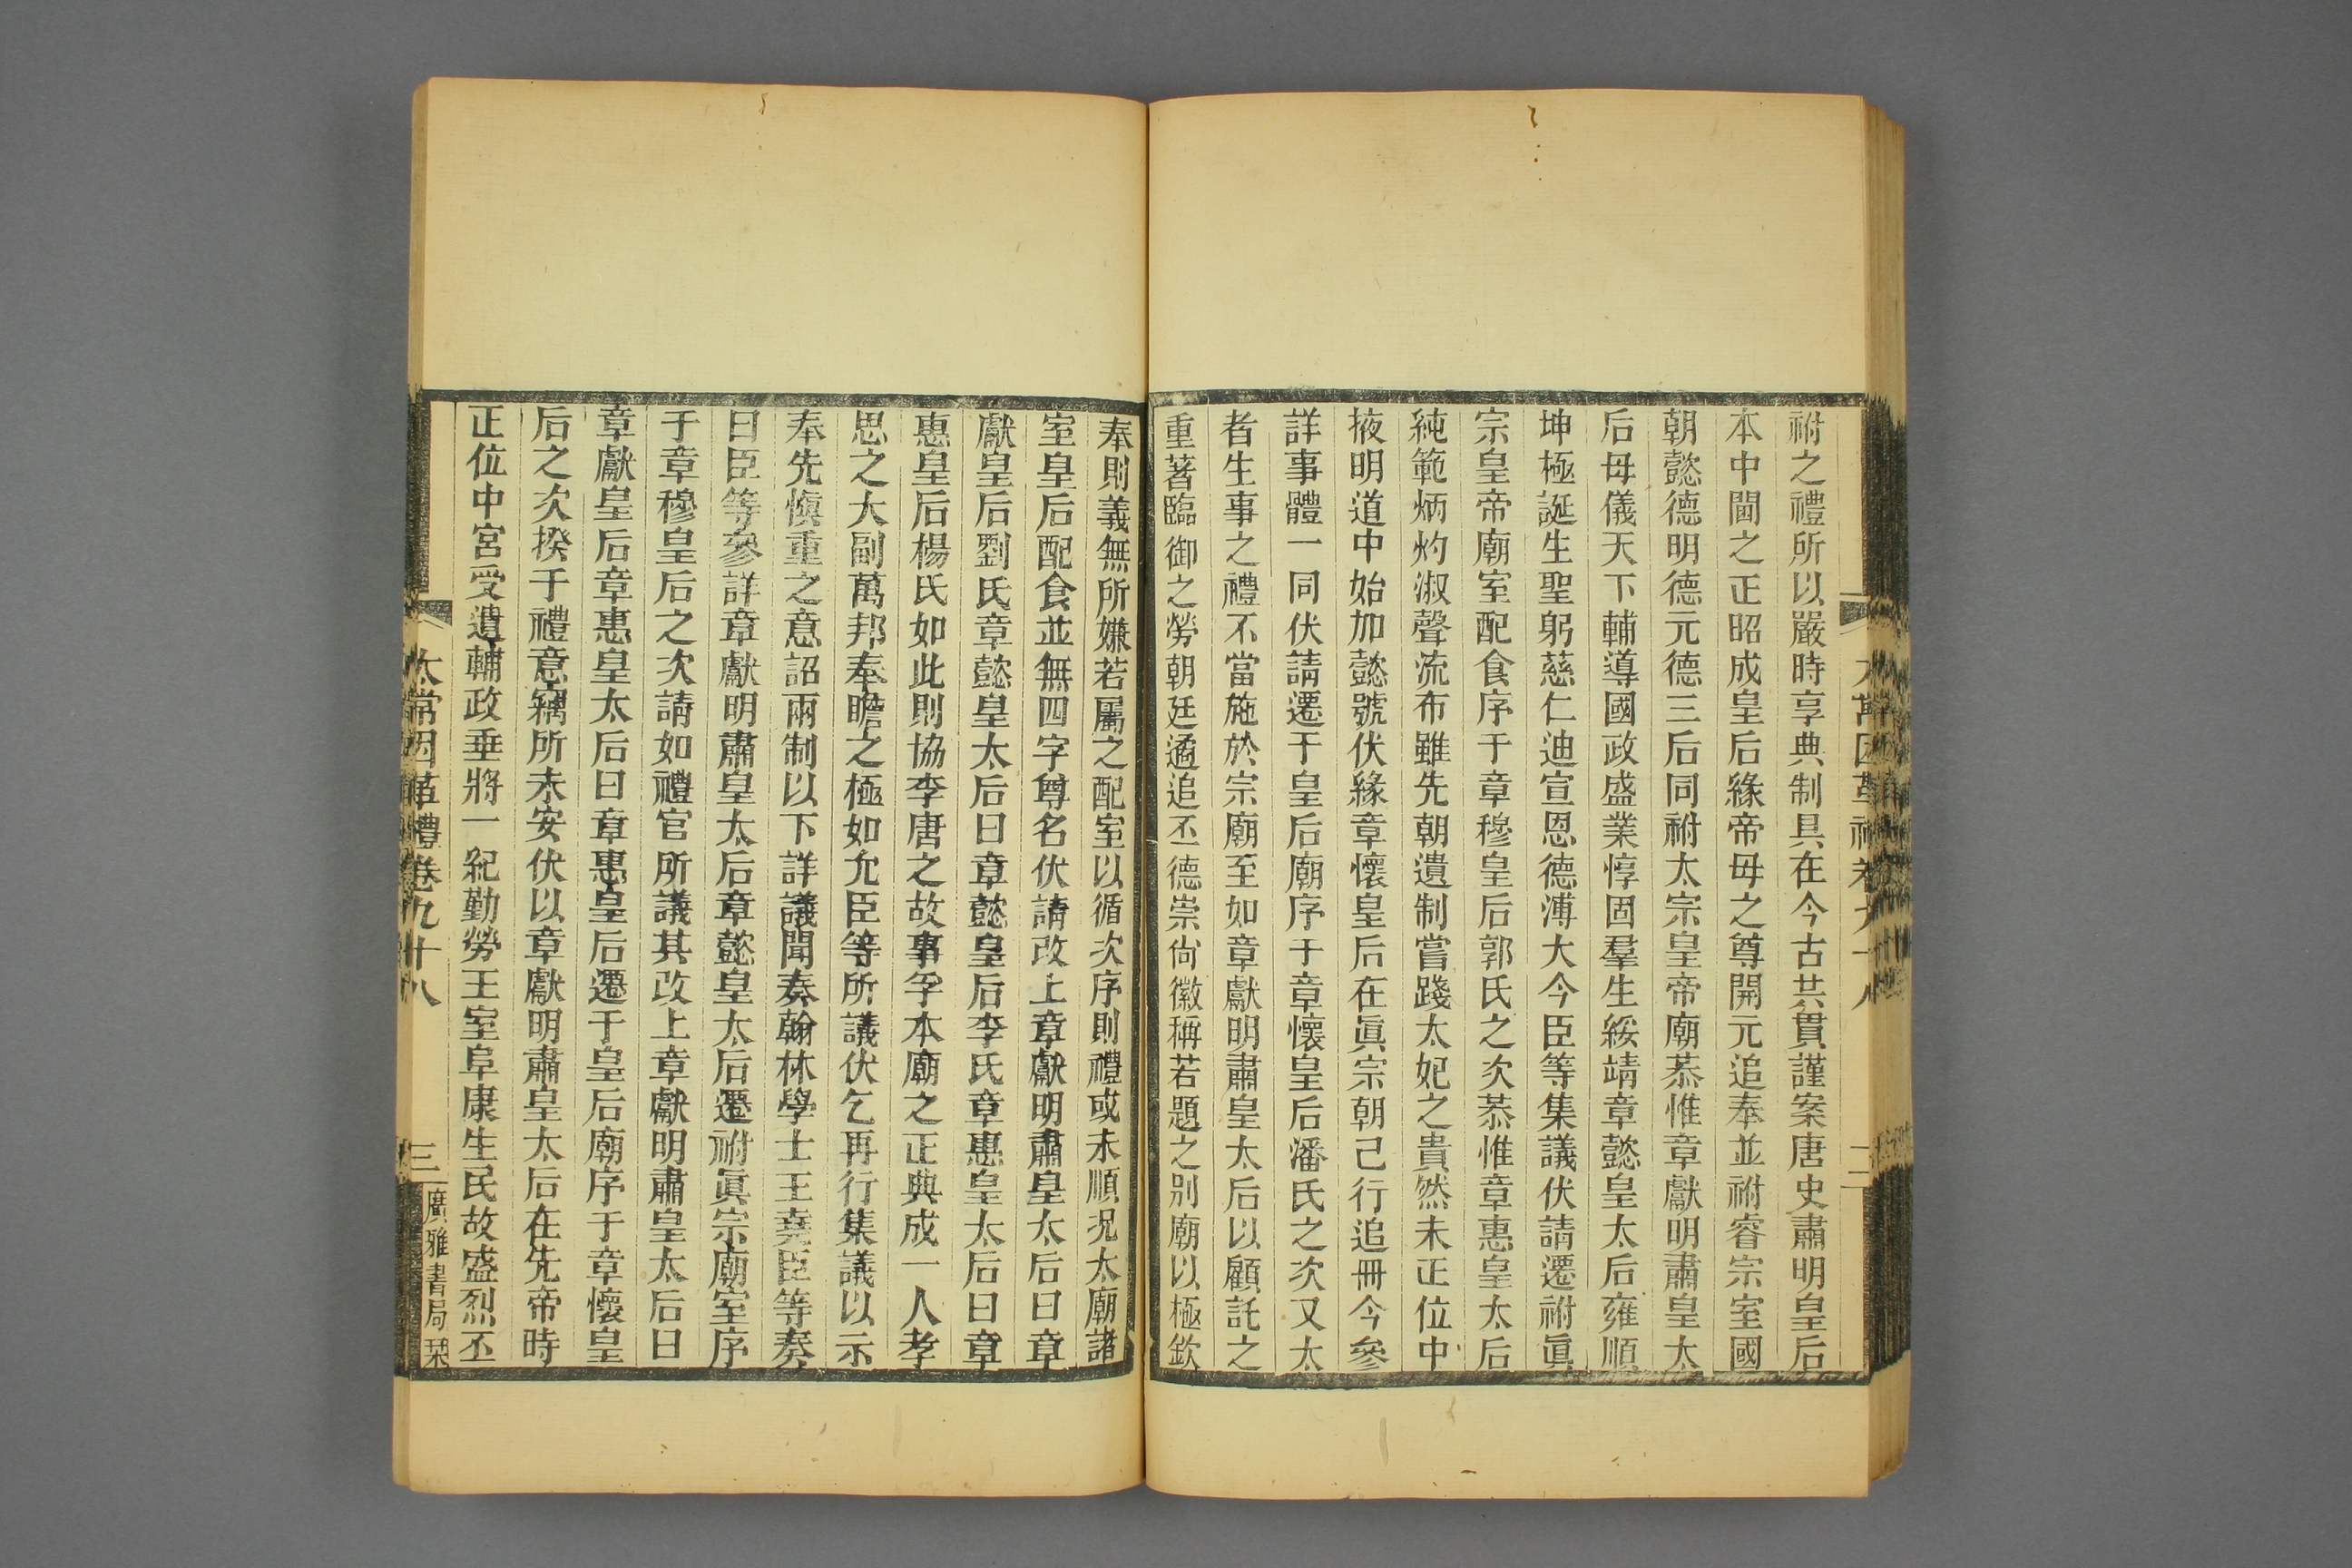 祔之禮所以嚴時享典制具在今古共貫謹案唐史肅明皇后
本中閫之正昭成皇后緣帝母之尊開元追奉並祔睿宗室國
朝懿德明德元德三后同祔太宗皇帝廟恭惟章獻明肅皇太
后母儀天下輔導國政盛業惇固羣生綏靖章懿皇太后雍順
坤極誕生聖躬慈仁迪宣恩德溥大今臣等集議伏請遷祔眞
宗皇帝廟室配食序于章穆皇后郭氏之次恭惟章惠皇太后
純範炳灼淑聲流布雖先朝遺制嘗踐太妃之貴然未正位中
掖明道中始加懿號伏緣章懷皇后在眞宗朝己行追冊今參
詳事體一同伏請遷于皇后廟序于章懷皇后潘氏之次又太
者生事之禮不當施於宗廟至如章獻明肅皇太后以顧託之
重著臨御之勞朝廷遹追丕德崇尙徽稱若題之别廟以極欽
奉則義無所嫌若屬之配室以循次序則禮或未順况太廟諸
室皇后配食並無四字尊名伏請改上章獻明肅皇太后曰章
獻皇后劉氏章懿皇太后曰章懿皇后李氏章惠皇太后曰章
惠皇后楊氏如此則協李唐之故事孚本廟之正典成一人孝
思之大副萬邦奉瞻之極如允臣等所議伏乞再行集議以示
奉先愼重之意詔兩制以下詳議聞奏翰林學士王堯臣等奏
曰臣等參詳章獻明肅皇太后章懿皇太后遷祔眞宗廟室序
于章穆皇后之次請如禮官所議其改上章獻明肅皇太后曰
章獻皇后章惠皇太后曰章惠皇后遷于皇后廟序于章懷皇
后之次揆于禮意竊所未安伏以章獻明肅皇太后在先帝時
正位中宮受遺輔政垂將一紀勤勞王室阜康生民故盛烈丕
太常因革禮卷九十八
三
廣雅書局栞